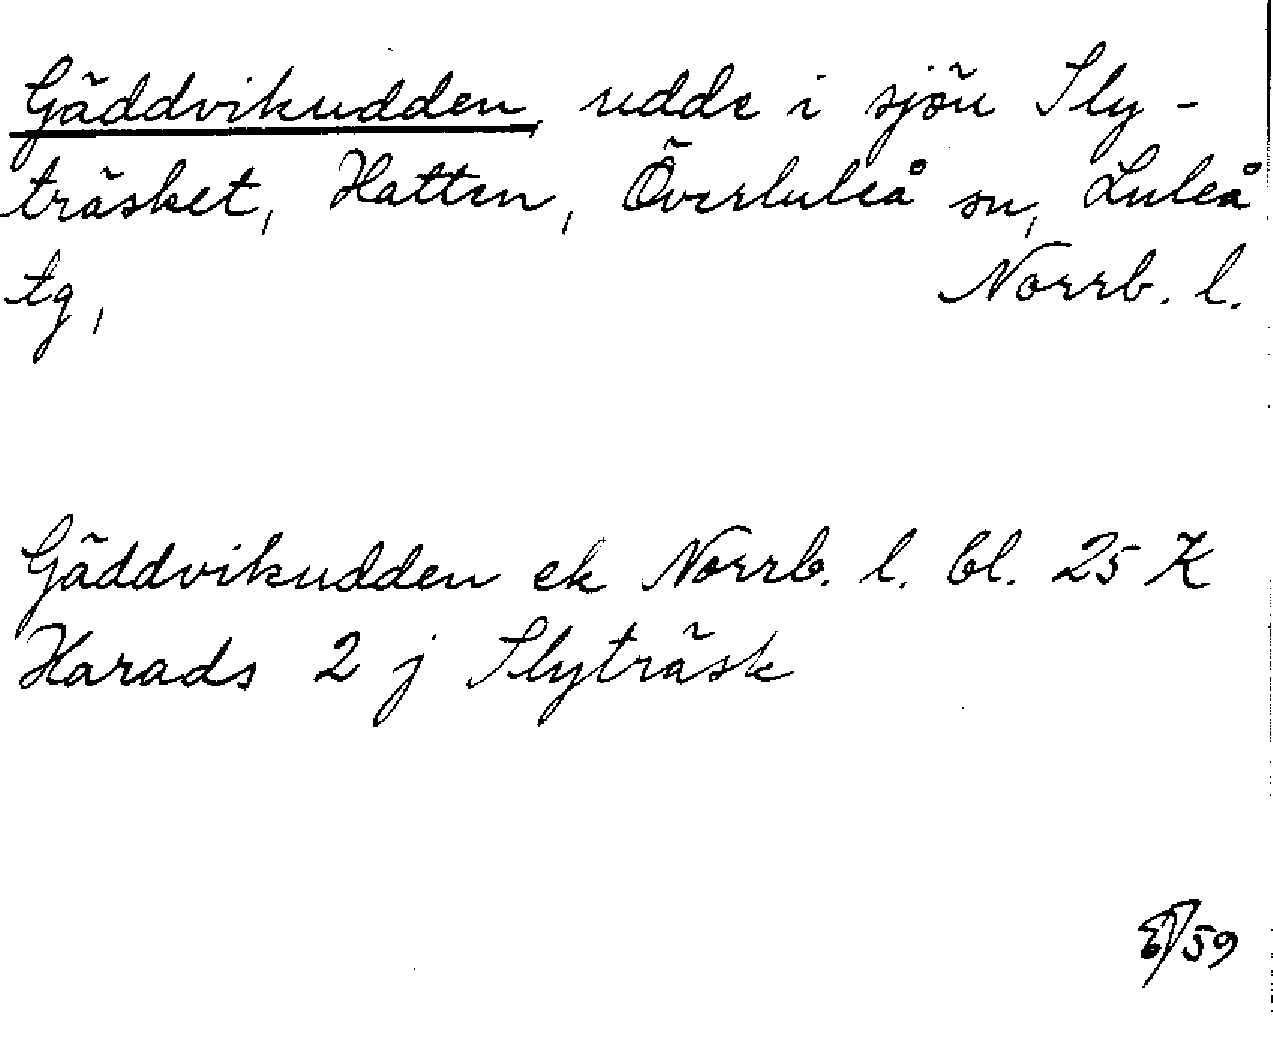 Gäddvikudden, udde i sjön Sly-
träsket, Hatten, Överluleå sn, Luleå
tg, Norrb. l.
Gäddvikudden ek Norrb. l. bl. 25 K
Harads 2 j Slyträsk
59